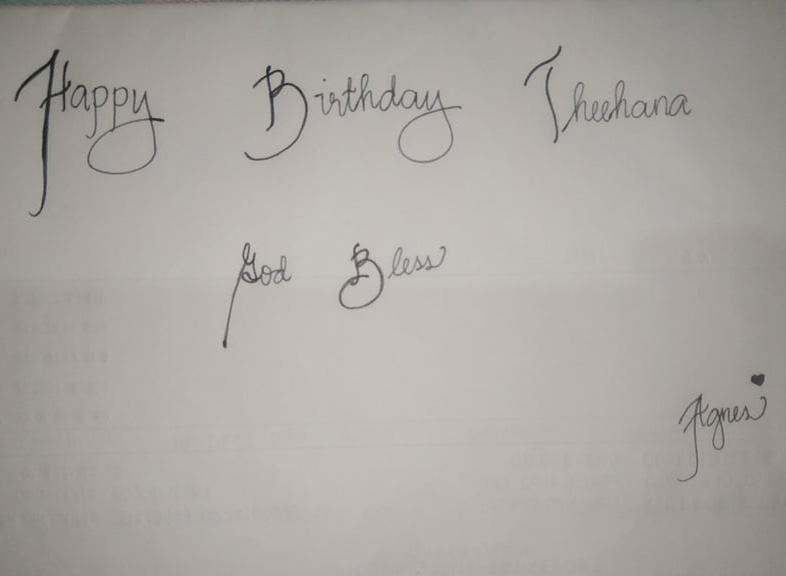 Happy Birthday Theehana
God Bless
Agnes